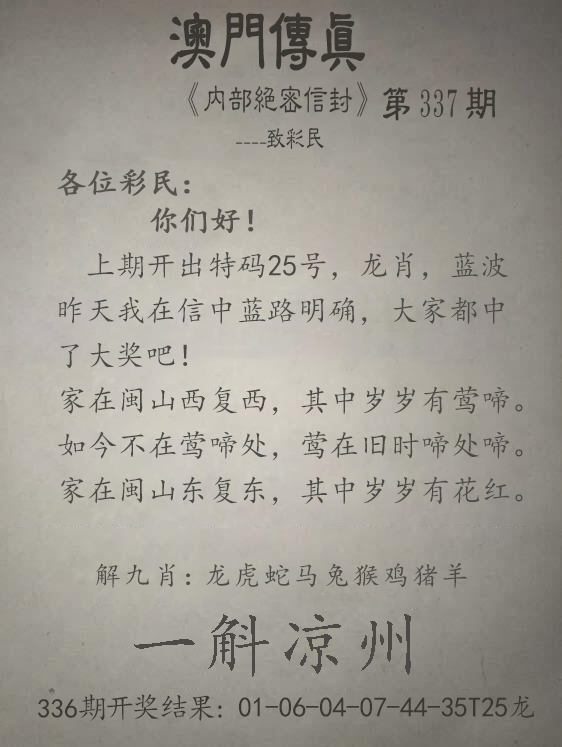 澳門傳真
《内部絕密信封》第337期
----致彩民
各位彩民：
你们好！
上期开出特码25号，龙肖，蓝波
昨天我在信中蓝路明确，大家都中
了大奖吧！
家在闽山西复西，其中岁岁有莺啼。
如今不在莺啼处，莺在旧时啼处啼。
家在闽山东复东，其中岁岁有花红。
解九肖：龙虎蛇马兔猴鸡猪羊
一斛凉州
336期开奖结果：01-06-04-07-44-35T25龙